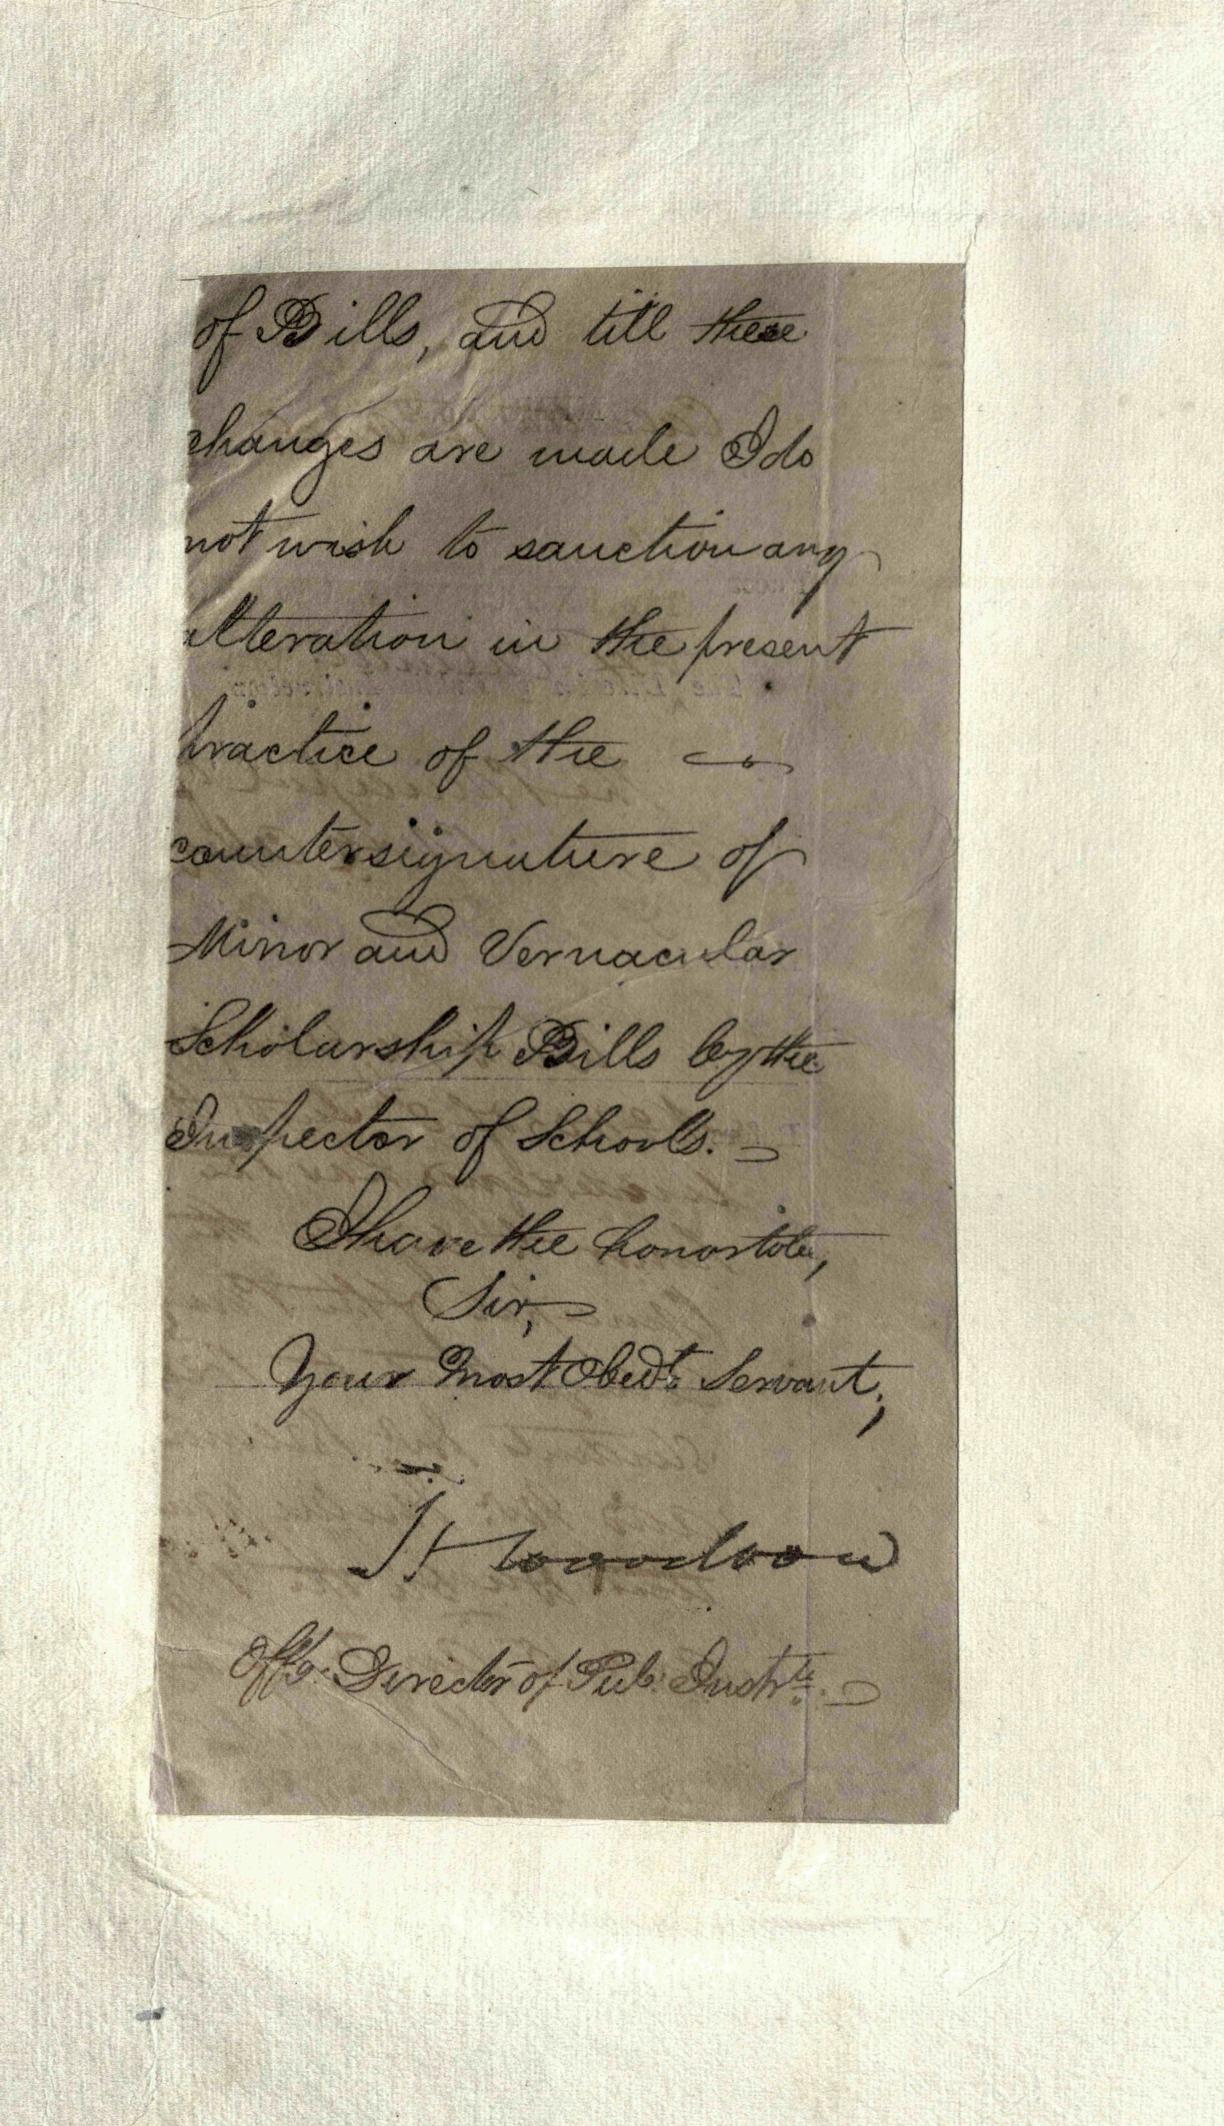 of Bills, and till these
changes are made I do
not wish to sanction any
alteration in the present
practice of the
countersignature of
Minor and Vernacular
Scholarship Bills by the
Inspector of Schools.
I have the honor to be,
Sir,
Your Most Obedt. Servant,
Offg. Director of Pub. Instr